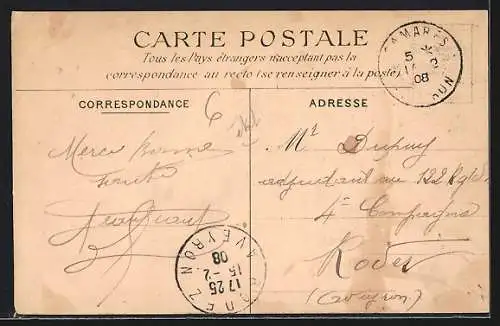 CARTE POSTALE
Tous les Pays étrangers n'acceptant pas la
correspondance au recto (se renseigner à la poste)
CAMARES
5
08
CORRESPONDANCE
ADRESSE
6
Merci bonne
Mr Dupuy
adjudant au 122 Rgt
4e Compagnie
Rodez
(Aveyron)
RODEZ AVEYRON
17 25
15 - 2
08